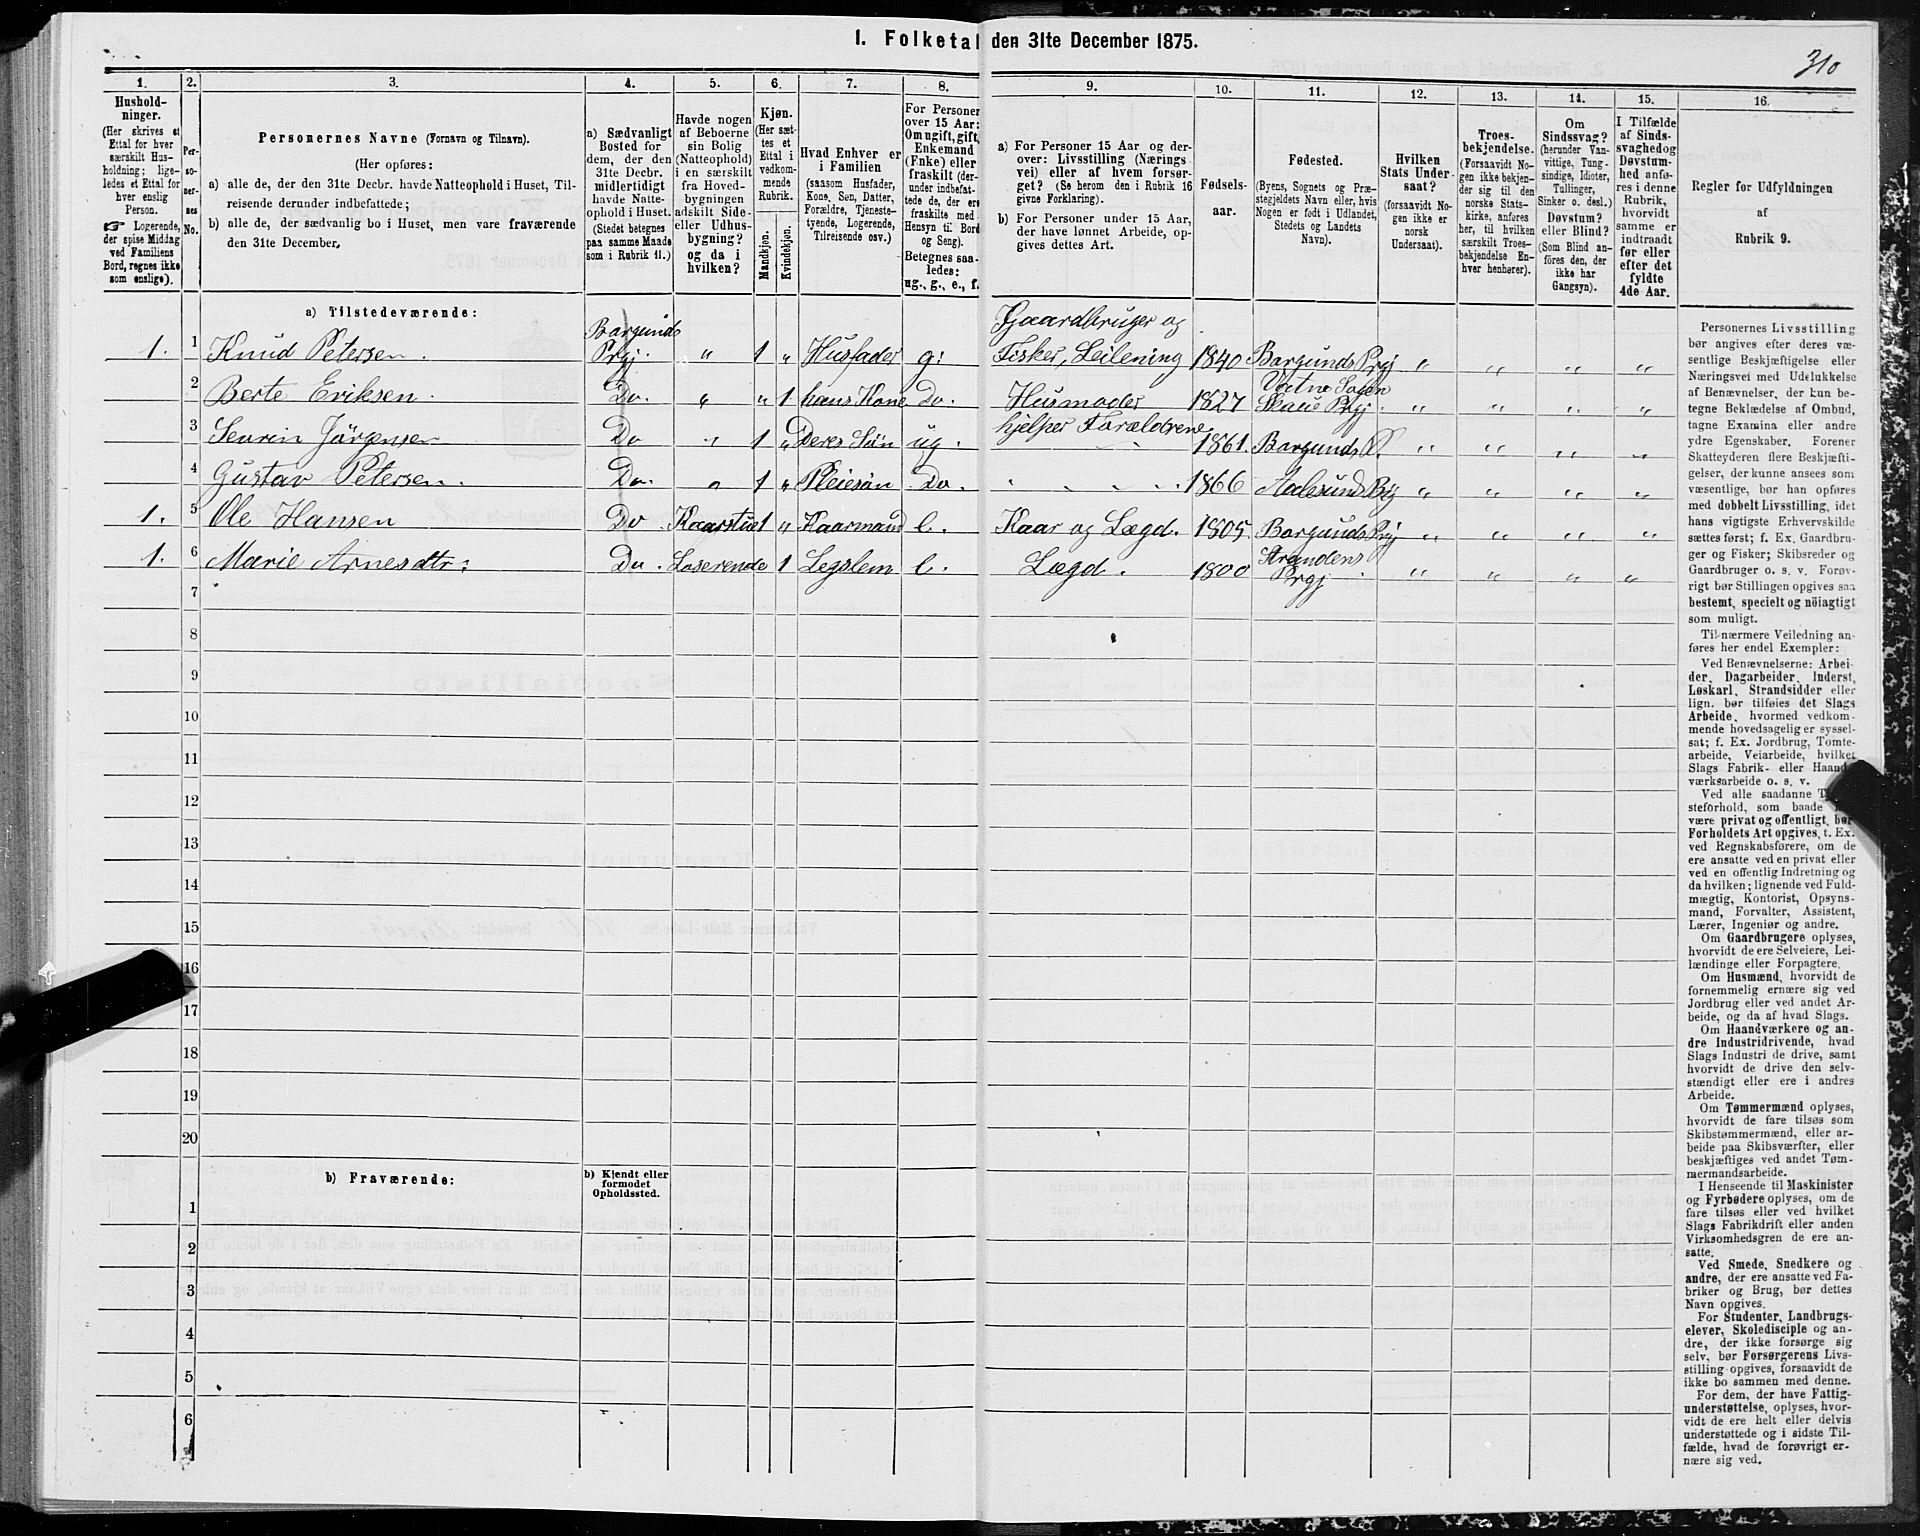 I. Folketal den 31te December 1875.
310
1.
2.
3.
4.
5.
6.
7.
8.
9.
10.
11.
12.
13.
14.
15.
16.
Hushold-
ninger.
(Her skrives et
Ettal for hver
særskilt Hus-
holdning; lige-
ledes et Ettal for
hver enslig
Person.
☞ Logerende,
der spise Middag
ved Familiens
Bord, regnes ikke
som enslige).
Per-
so-
ner-
nes
No.
Personernes Navne (Fornavn og Tilnavn).
(Her opføres:
a) alle de, der den 31te Decbr. havde Natteophold i Huset, Til-
reisende derunder indbefattede;
b) alle de, der sædvanlig bo i Huset, men vare fraværende
den 31te December.
a) Sædvanligt
Bosted for
dem, der den
31te Decbr.
midlertidigt
havde Natte-
ophold i Huset.
(Stedet betegnes
paa samme Maade
som i Rubrik 11.)
Havde nogen
af Beboerne
sin Bolig
(Natteophold)
i en særskilt
fra Hoved-
bygningen
adskilt Side-
eller Udhus-
bygning?
og da i
hvilken?
Kjøn.
(Her sæt-
tes et
Ettal i
vedkom-
mende
Rubrik.
Mandkjøn.
Kvindekjøn.
Hvad Enhver er
i Familien
(saasom Husfader,
Kone, Søn, Datter,
Forældre, Tjeneste-
tyende, Logerende,
Tilreisende osv.)
For Personer
over 15 Aar:
Om ugift, gift,
Enkemand
(Enke) eller
fraskilt (der-
under indbefat-
tede de, der ere
fraskilte med
Hensyn til Bord
og Seng).
Betegnes saa-
ledes:
ug., g., e., f.
a) For Personer 15 Aar og der-
over: Livsstilling (Nærings-
vei) eller af hvem forsør-
get? (Se herom den i Rubrik 16
givne Forklaring).
b) For Personer under 15 Aar,
der have lønnet Arbeide, op-
gives dettes Art.
Fødsels-
aar.
Fødested.
(Byens, Sognets og Præ-
stegjeldets Navn eller, hvis
Nogen er født i Udlandet,
Stedets og Landets
Navn).
Hvilken
Stats Under-
saat?
(forsaavidt No-
gen ikke er
norsk
Undersaat).
Troes-
bekjendelse.
(Forsaavidt No-
gen ikke bekjen-
der sig til den
norske Stats-
kirke, anføres
her, til hvilken
særskilt Troes-
bekjendelse En-
hver henhører).
Om
Sindssvag?
(herunder Van-
vittige, Tung-
sindige, Idioter,
Tullinger,
Sinker o. desl.)
Døvstum?
eller Blind?
(Som Blind an-
føres den, der
ikke har
Gangsyn).
I Tilfælde
af Sinds-
svaghed og
Døvstum-
hed anfø-
res i denne
Rubrik,
hvorvidt
samme er
indtraadt
før eller
efter det
fyldte
4de Aar.
Regler for Udfyldningen
af
Rubrik 9.
a) Tilstedeværende:
1. 1 Knud Petersen. Borgunds Prgj. " 1 " Husfader g: Gaardbruger og Fisker, Leilening 1840 Borgunds Prgj " " " "
2 Berte Eriksen. Do. " " 1 hans Kone Do. Husmoder 1827 Vatne Sogn Skaue Prgj. " " " "
3 Sevrin Jörgensen Do " 1 " Deres Sön ug. hjelper Forældrene 1861. Borgunds P. " " " "
4 Gustav Petersen. Do. " 1 " Pleiesön Do. " " " 1866 Aalesund By " " " "
1. 5 Ole Hansen Do. Kaarstue 1 " Kaarmand e. Kaar og Lægd. 1805 Borgunds Prgj " " " "
1. 6 Marie Arnesdtr: Do. Loserende 1 Legslem e. Lægd. 1800 Strandens Prgj " " " "
7
8
9
10
11
12
13
14
15
16
17
18
19
20
b) Fraværende:
b) Kjendt eller
formodet
Opholdssted.
1
2
3
4
5
6
Personernes Livsstilling
bør angives efter deres væ-
sentlige Beskjæftigelse eller
Næringsvei med Udelukkelse
af Benævnelser, der kun be-
tegne Beklædelse af Ombud,
tagne Examina eller andre
ydre Egenskaber. Forener
Skatteyderen flere Beskjæfti-
gelser, der kunne ansees som
væsentlige, bør han opføres
med dobbelt Livsstilling, idet
hans vigtigste Erhvervskilde
sættes først; f. Ex. Gaardbru-
ger og Fisker; Skibsreder og
Gaardbruger o. s. v. Forøv-
rigt bør Stillingen opgives saa
bestemt, specielt og nöiagtigt
som muligt.
Til nærmere Veiledning an-
føres her endel Exempler:
Ved Benævnelserne: Arbei-
der, Dagarbeider, Inderst,
Løskarl, Strandsidder eller
lign. bør tilføies det Slags
Arbeide, hvormed vedkom-
mende hovedsagelig er syssel-
sat; f. Ex. Jordbrug, Tomte-
arbeide, Veiarbeide, hvilket
Slags Fabrik- eller Haand-
værksarbeide o. s. v.
Ved alle saadanne
steforhold, som baade
være privat og offentligt, bør
Forholdets Art opgives, t. Ex.
ved Regnskabsførere, om de
ere ansatte ved en privat eller
ved en offentlig Indretning og
da hvilken; lignende ved Fuld-
mægtig, Kontorist, Opsyns-
mand, Forvalter, Assistent,
Lærer, Ingeniør og andre.
Om Gaardbrugere oplyses,
hvorvidt de ere Selveiere, Lei-
lændinge eller Forpagtere.
Om Husmænd, hvorvidt de
fornemmelig ernære sig ved
Jordbrug eller ved andet Ar-
beide, og da af hvad Slags.
Om Haandværkere og an-
dre Industridrivende, hvad
Slags Industri de drive, samt
hvorvidt de drive den selv-
stændigt eller ere i andres
Arbeide.
Om Tømmermænd oplyses,
hvorvidt de fare tilsøs som
Skibstømmermænd, eller ar-
beide paa Skibsværfter, eller
beskjæftiges ved andet Tøm-
mermandsarbeide.
I Henseende til Maskinister
og Fyrbødere oplyses, om de
fare tilsøs eller ved hvilket
Slags Fabrikdrift eller anden
Virksomhedsgren de ere an-
satte.
Ved Smede, Snedkere og
andre, der ere ansatte ved Fa-
briker og Brug, bør dettes
Navn opgives.
For Studenter, Landbrugs-
elever, Skoledisciple og an-
dre, der ikke forsørge sig
selv, bør Forsørgerens Livs-
stilling opgives, forsaavidt de
ikke bo sammen med denne.
For dem, der have Fattig-
understøttelse, oplyses, hvor-
vidt de ere helt eller delvis
understøttede og i sidste Til-
fælde, hvad de forøvrigt er-
nære sig ved.